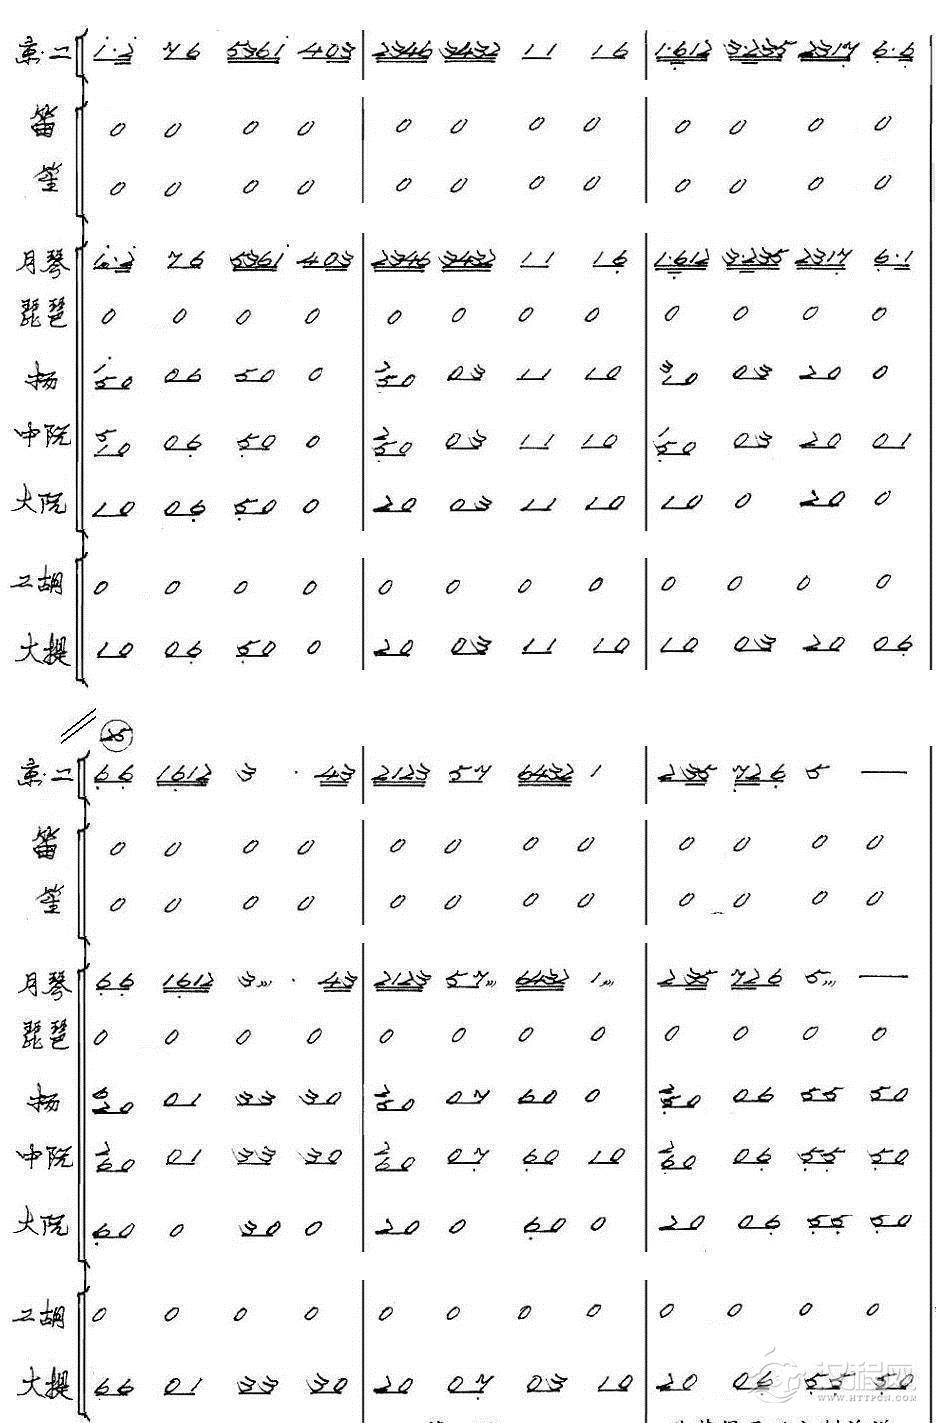 京·二 1·2 76 5361 403 2346 3432 11 16 1·612 3·235 2317 6·6
笛 0 0 0 0 0 0 0 0 0 0 0 0
笙 0 0 0 0 0 0 0 0 0 0 0 0
月琴 1·2 76 5361 403 2346 3432 11 16 1·612 3·235 2317 6·1
琵琶 0 0 0 0 0 0 0 0 0 0 0 0
扬 50 06 50 0 50 03 11 10 10 03 20 0
中阮 10 06 50 0 50 03 11 10 50 03 20 01
大阮 10 06 50 0 20 03 11 10 10 0 20 0
二胡 0 0 0 0 0 0 0 0 0 0 0 0
大提 10 06 50 0 20 03 11 10 10 03 20 06
25
京·二 66 1612 3 · 43 2123 57 6432 1 235 726 5 —
笛 0 0 0 0 0 0 0 0 0 0 0 0
笙 0 0 0 0 0 0 0 0 0 0 0 0
月琴 66 1612 3 · 43 2123 57 6432 1 235 726 5 —
琵琶 0 0 0 0 0 0 0 0 0 0 0 0
扬 20 01 33 30 50 07 60 0 50 06 55 50
中阮 60 01 33 30 60 07 60 10 60 06 55 50
大阮 60 0 30 0 20 0 60 0 20 06 55 50
二胡 0 0 0 0 0 0 0 0 0 0 0 0
大提 66 01 33 30 20 07 03 10 20 06 55 50
汉程网
WWW.HTTPCN.COM